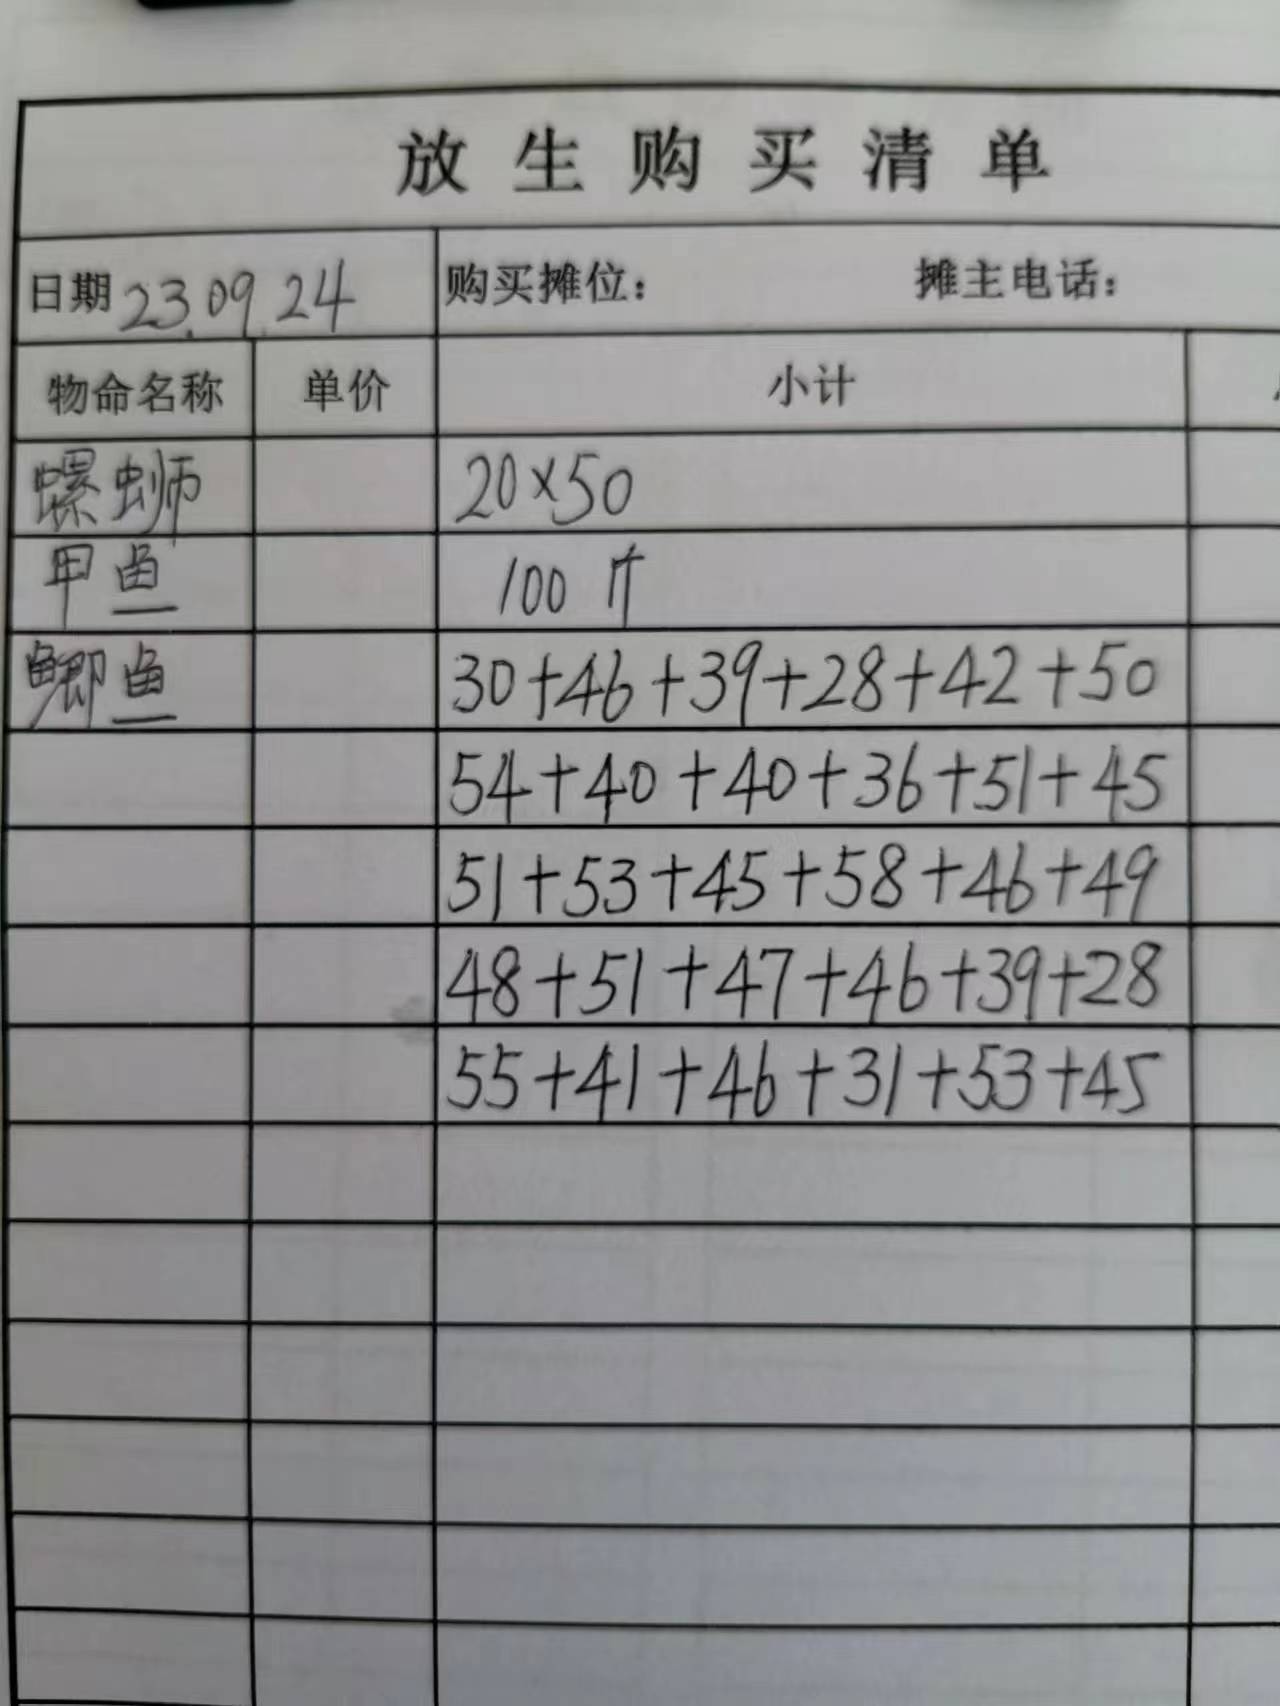 放生购买清单
日期 23.09.24 购买摊位： 摊主电话：
物命名称 单价 小计
螺蛳 20×50
甲鱼 100斤
鲫鱼 30+46+39+28+42+50
54+40+40+36+51+45
51+53+45+58+46+49
48+51+47+46+39+28
55+41+46+31+53+45